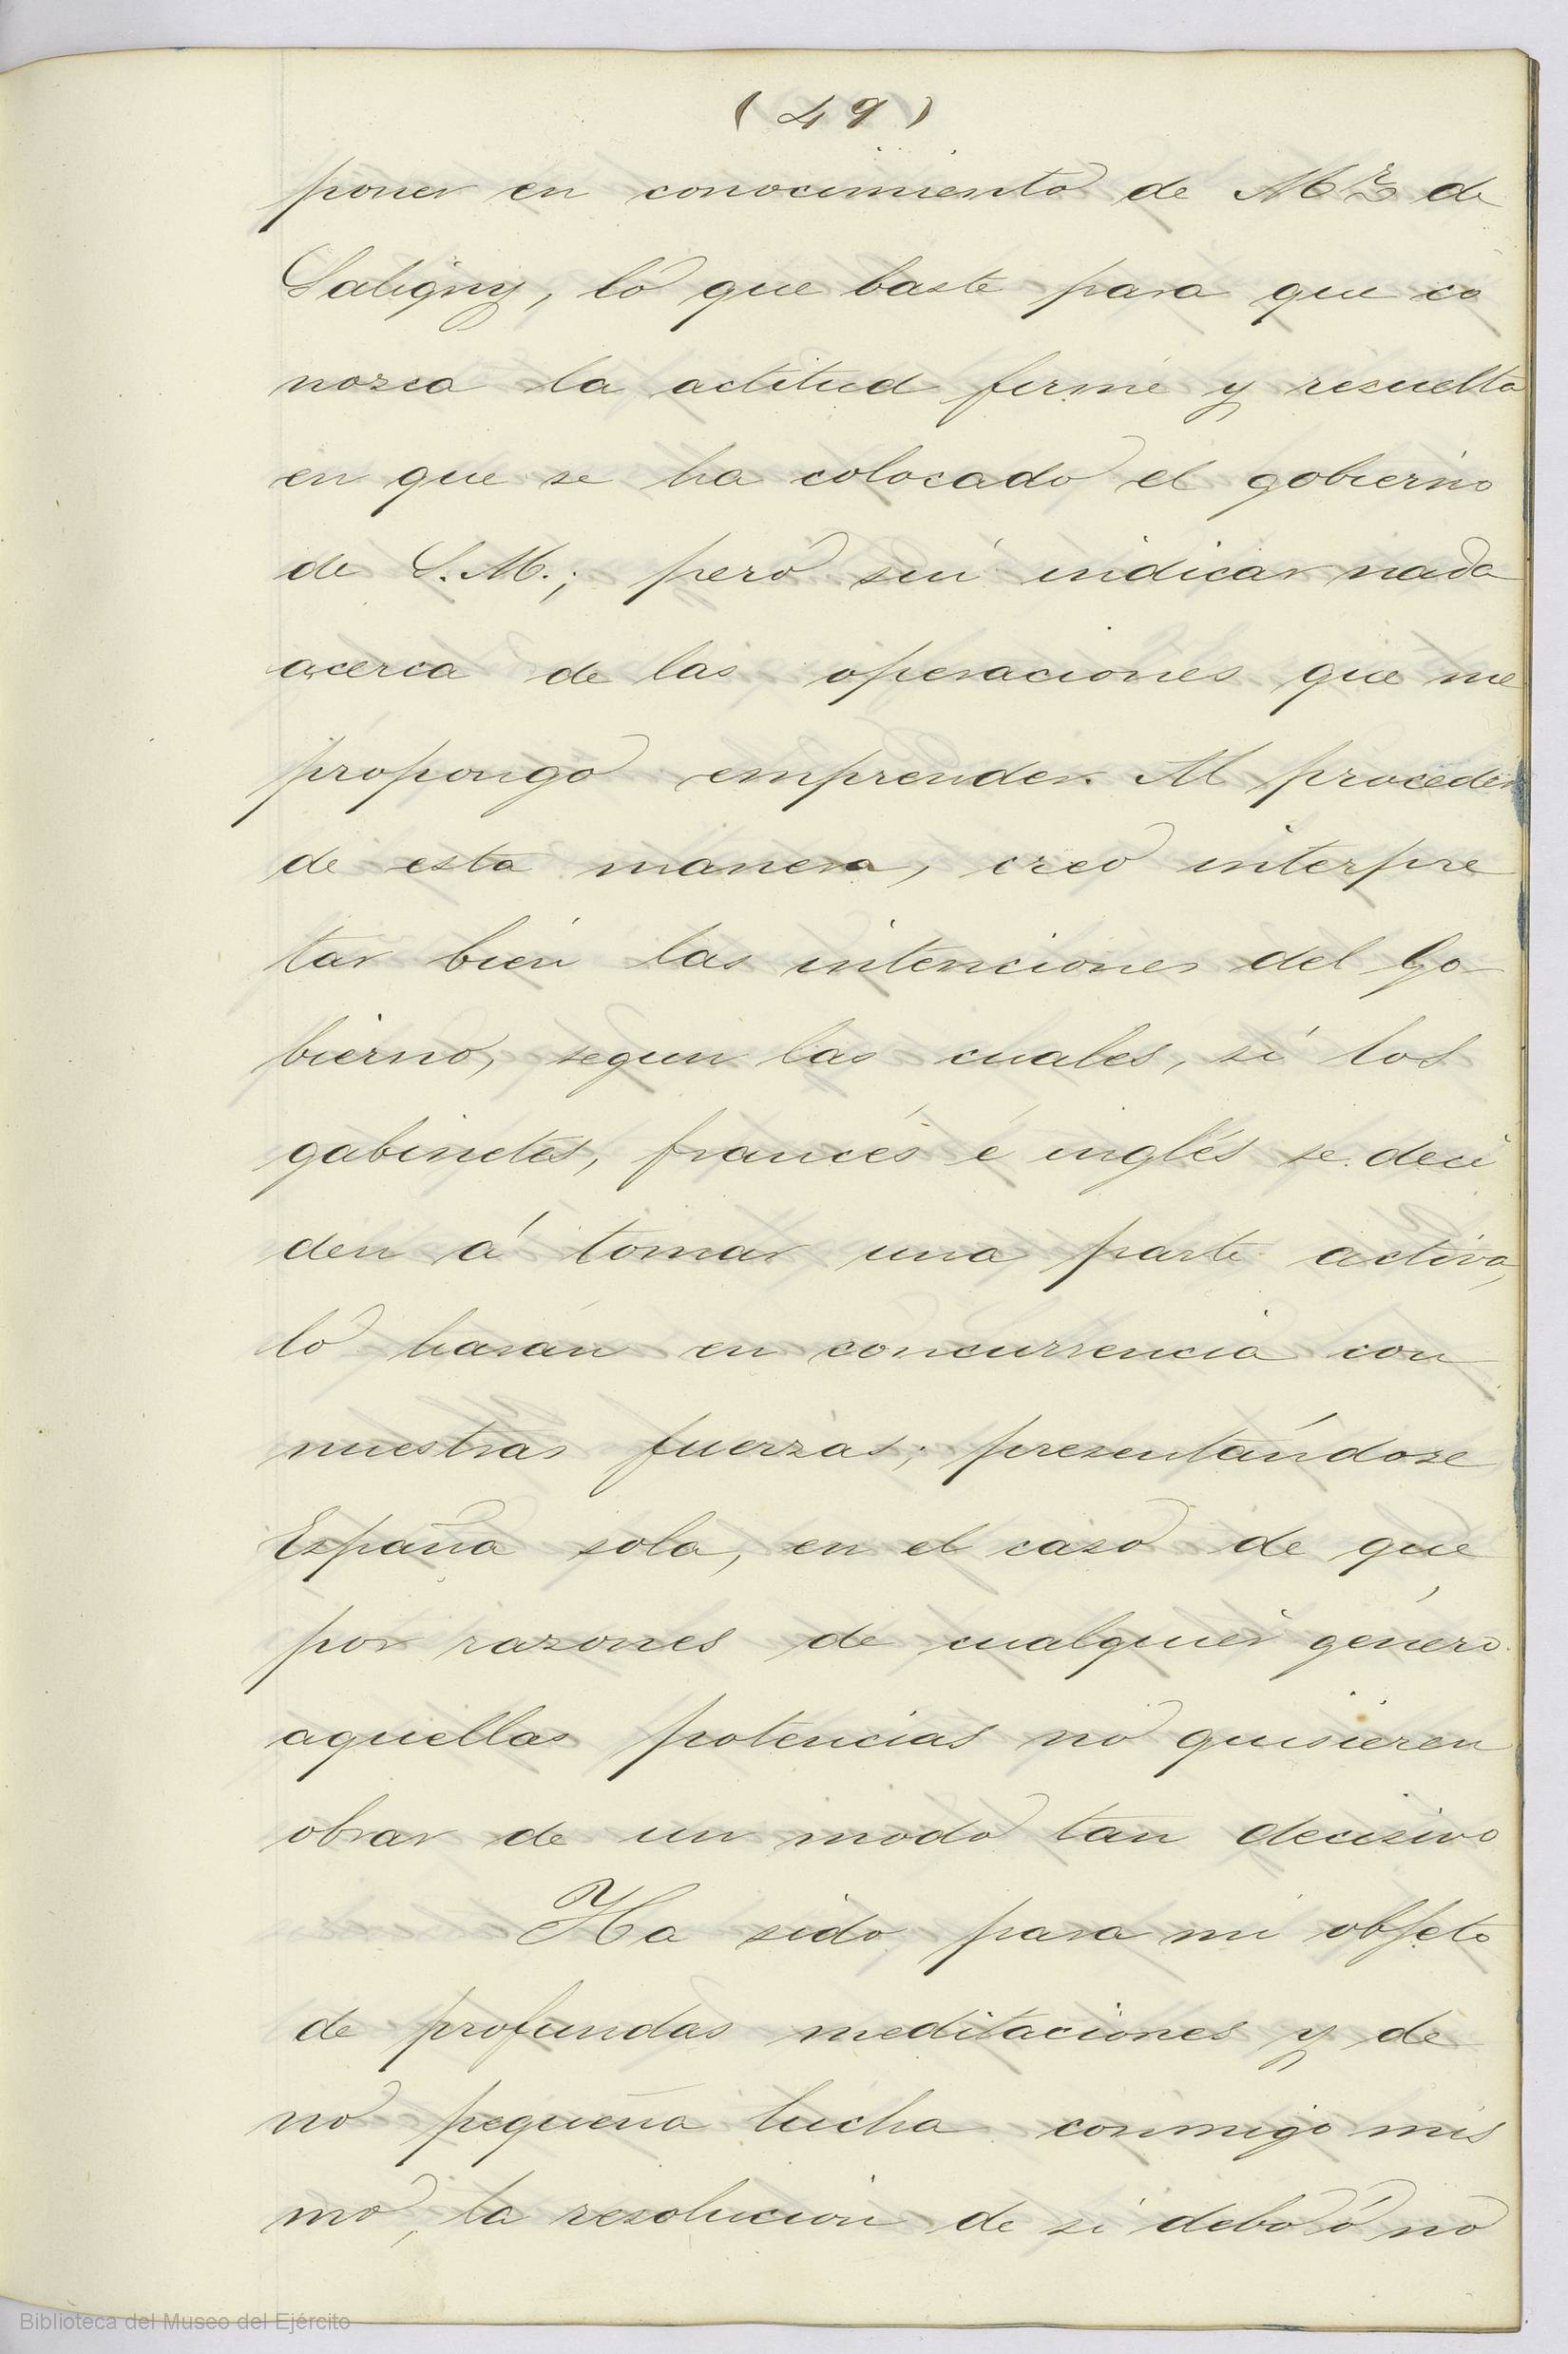 (49)
poner en conocimiento de Mr. de
Saligny, lo que baste para que co
nozca la actitud firme y resuelta
en que se ha colocado el gobierno
de S.M.; pero sin indicar nada
acerca de las operaciones que me
propongo emprender. Al proceder
de esta manera, creo interpre
tar bien las intenciones del Go-
bierno, segun las cuales, si los
gabinetes, francés é inglés se deci
den á tomar una parte activa,
lo harán en concurrencia con
nuestras fuerzas; presentándose
España sola, en el caso de que
por razones de cualquier género
aquellas potencias no quisieren
obrar de un modo tan decisivo
Ha sido para mi objeto
de profundas meditaciones y de
no pequeña lucha conmigo mis
mo, la resolucion de si debo ó no
Biblioteca del Museo del Ejército